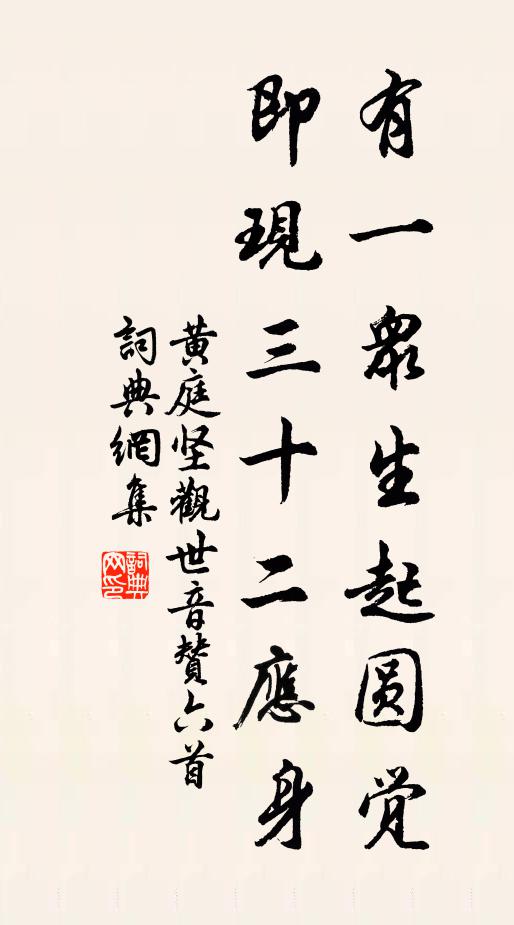 有一眾生起圆觉
即現三十二應身
黃庭坚觀世音贊六首
詞典網集
詞典网印